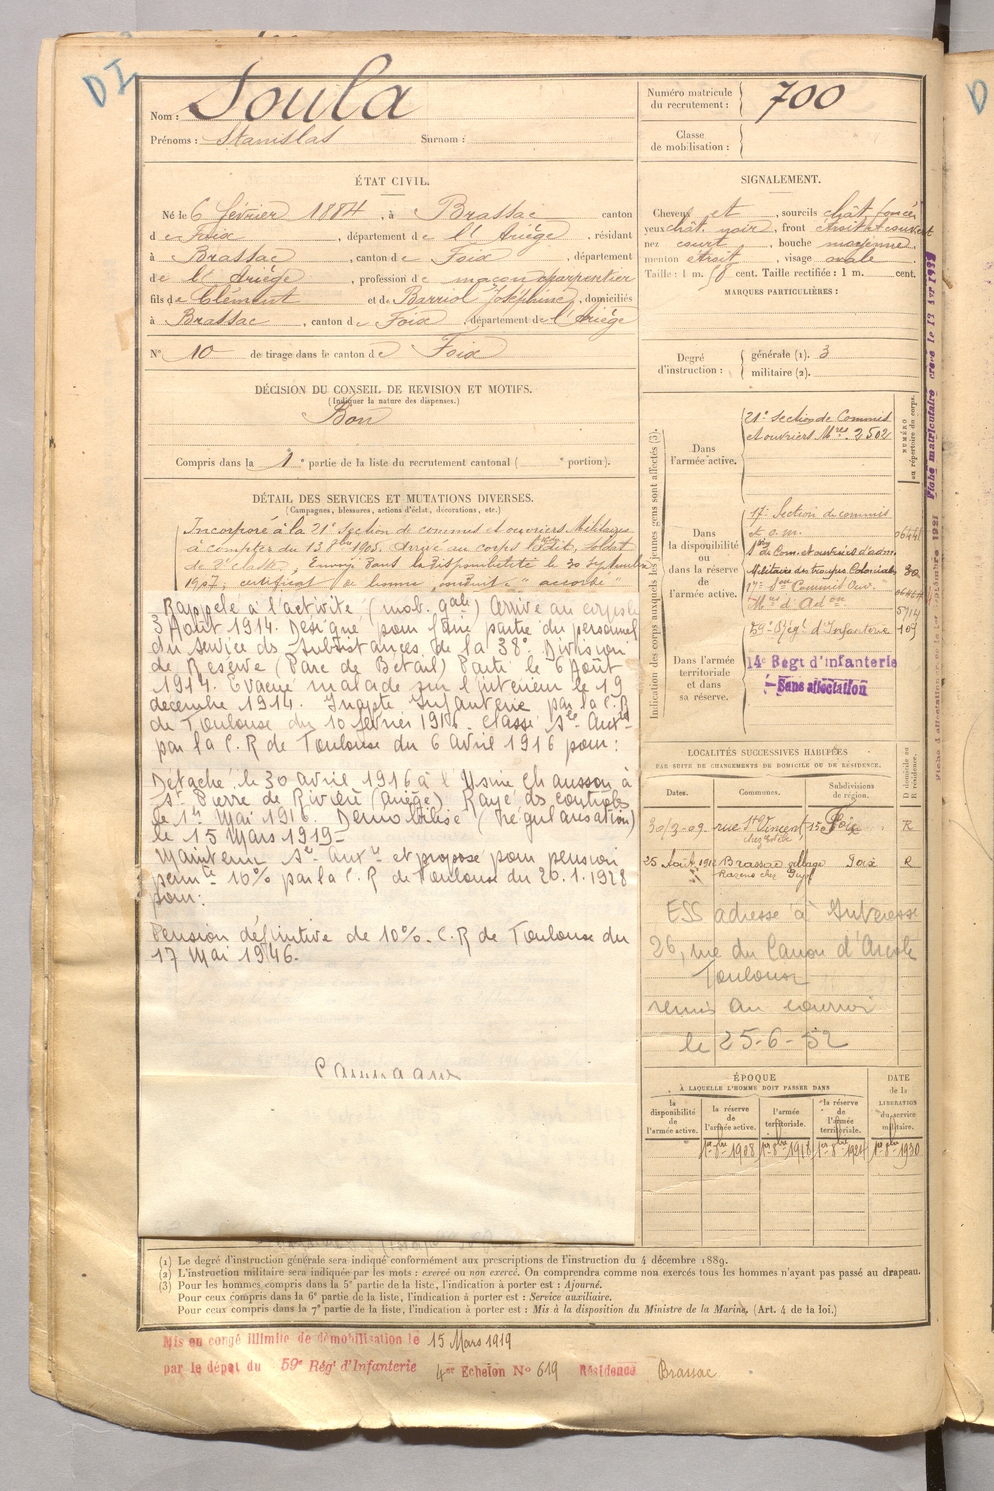 DI
Nom : Soula
Prénoms : Stanislas Surnom :
ÉTAT CIVIL.
Né le 6 février 1884, à Brassac canton
de Foix, département de l'Ariège, résidant
à Brassac, canton de Foix, département
de l'Ariège, profession de maçon charpentier
fils de Clément et de Barriol Joséphine, domiciliés
à Brassac, canton de Foix, département de l'Ariège
N° 10 de tirage dans le canton de Foix
DÉCISION DU CONSEIL DE REVISION ET MOTIFS.
(Indiquer la nature des dispenses.)
Bon
Compris dans la 1e partie de la liste du recrutement cantonal ( e portion).
DÉTAIL DES SERVICES ET MUTATIONS DIVERSES.
(Campagnes, blessures, actions d'éclat, décorations, etc.)
Incorporé à la 21e Section de commis et ouvriers Militaires
à compter du 13 8bre 1905. Arrivé au corps ledit, soldat
de 2e classe. Envoyé dans la disponibilité le 30 Septembre
1907; certificat de bonne conduite "accordé"
Rappelé à l'activité (mob. gale) Arrivé au corps le
3 Août 1914. Désigné pour faire partie du personnel
du service des Subsistances de la 38e Division
de Réserve (Parc de Bétail) Parti le 6 Août
1914. Evacué malade sur l'intérieur le 19
décembre 1914. Inapte Infanterie par la C.R
de Toulouse du 10 février 1916. Classé Sce Auxre
par la C.R de Toulouse du 6 Avril 1916 pour :
Détaché le 30 avril 1916 à l'Usine Chausson à
St Pierre de Rivière (Ariège) Rayé des contrôles
le 1er Mai 1916. Démobilisé (régularisation)
le 15 Mars 1919-
Maintenu Sce Auxre et proposé pour pension
permte 10% par la C.R de Toulouse du 26.1.1928
pour :
Pension définitive de 10%. C.R de Toulouse du
17 Mai 1946.
Numéro matricule du recrutement : 700
Classe de mobilisation :
SIGNALEMENT.
Cheveux et, sourcils chât foncés
yeux chât. noir, front étroit et couvert
nez court, bouche moyenne,
menton étroit, visage ovale
Taille : 1 m. 58 cent. Taille rectifiée : 1 m. cent.
MARQUES PARTICULIÈRES :
Degré d'instruction : générale (1). 3
militaire (2).
Indication des corps auxquels les jeunes gens sont affectés (3).
NUMÉRO au répertoire du corps.
Dans l'armée active.
21e Section de Commis
et ouvriers Mres. 2502
Dans la disponibilité ou dans la réserve de l'armée active.
17e Section de commis
et o.m.
Militaires des troupes Coloniales 30
17e Son Commis Ouv.
59e Régt d'Infanterie 109
Dans l'armée territoriale et dans sa réserve.
14e Régt d'infanterie
Sans affectation
LOCALITÉS SUCCESSIVES HABITÉES
PAR SUITE DE CHANGEMENTS DE DOMICILE OU DE RÉSIDENCE.
Dates. Communes. Subdivisions de région. D domicile ou R résidence.
30/3-09 rue St Vincent 15 Foix R
25 Août 1912 Brassac village Foix R
ESS adresse à
26, rue du Canon d'Arcole
Toulouse
remis au courrier
le 25-6-52
ÉPOQUE
À LAQUELLE L'HOMME DOIT PASSER DANS
DATE de la LIBÉRATION du service militaire.
la disponibilité de l'armée active. la réserve de l'armée active. l'armée territoriale. la réserve de l'armée territoriale.
1er 8bre 1908 1er 8bre 1918 1er 8bre 1924 1er 8bre 1930
(1) Le degré d'instruction générale sera indiqué conformément aux prescriptions de l'instruction du 4 décembre 1889.
(2) L'instruction militaire sera indiquée par les mots : exercé ou non exercé. On comprendra comme non exercés tous les hommes n'ayant pas passé au drapeau.
(3) Pour les hommes compris dans la 5e partie de la liste, l'indication à porter est : Ajourné.
Pour ceux compris dans la 6e partie de la liste, l'indication à porter est : Service auxiliaire.
Pour ceux compris dans la 7e partie de la liste, l'indication à porter est : Mis à la disposition du Ministre de la Marine. (Art. 4 de la loi.)
Mis en congé illimité de démobilisation le 15 Mars 1919
par le dépôt du 59e Régt d'Infanterie 4er Echelon N° 619 Résidence Brassac